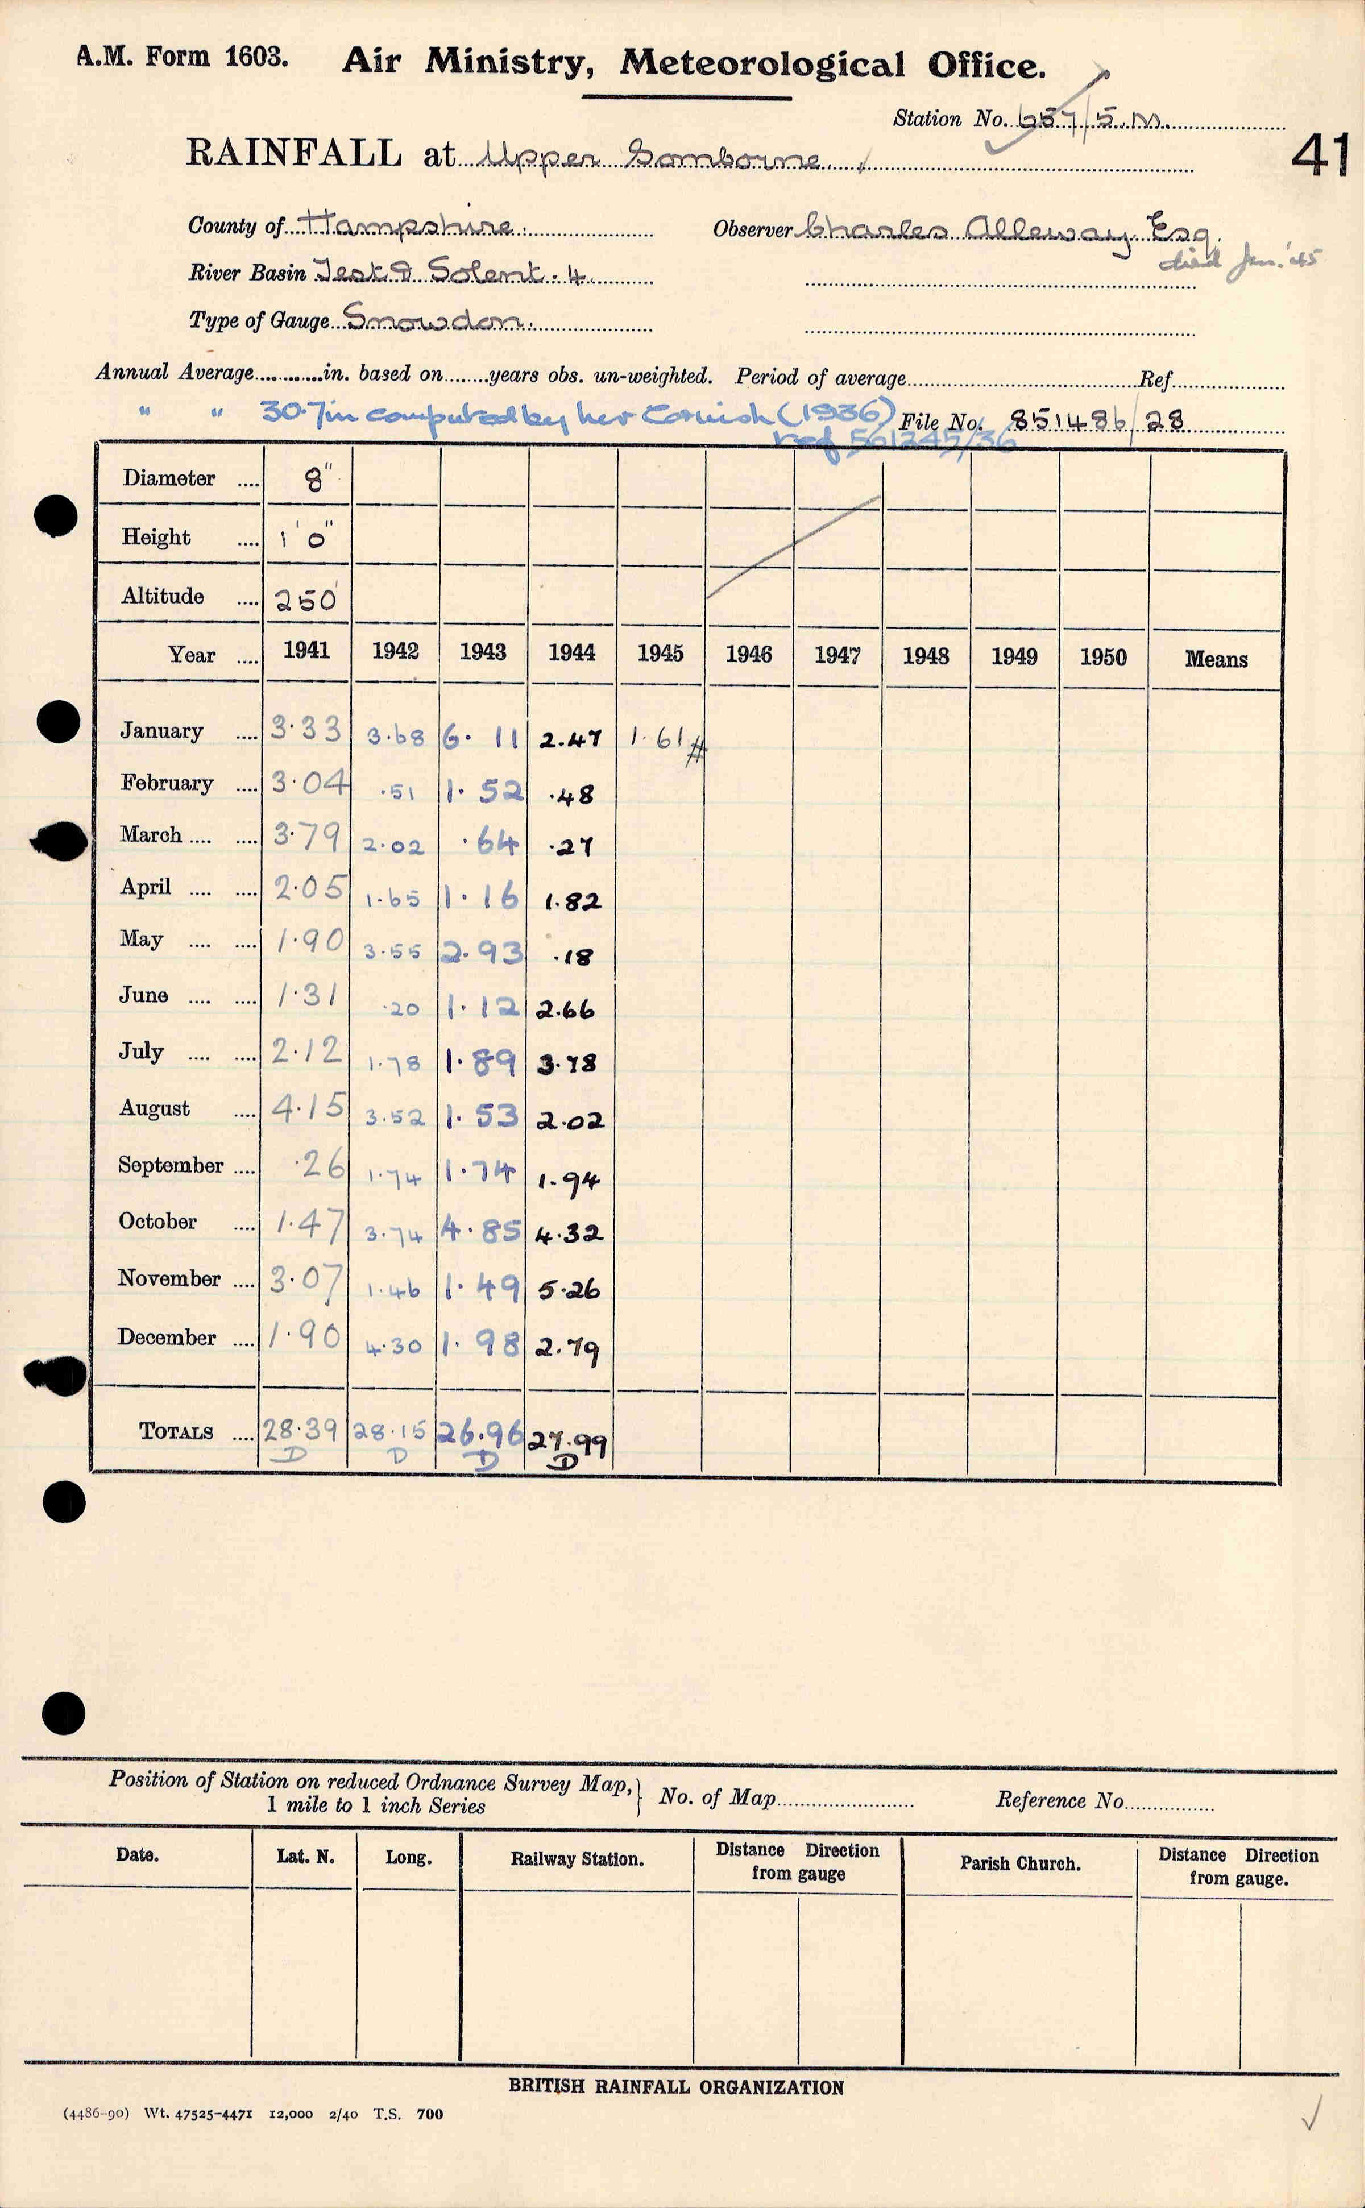 A.M. Form 1603. Air Ministry, Meteorological Office.
Station No. 657/5.M.
RAINFALL at Upper Somborne
41
County of Hampshire. Observer Charles Alleway Esq.
died Jan. '45
River Basin Test & Solent. 4
Type of Gauge Snowdon.
Annual Average............in. based on........years obs. un-weighted. Period of average.................... Ref..........
" " 30.7in computed by her Cornish (1936) File No. 851486/28
ref 561245/36
Diameter .... 8"
Height .... 1' 0"
Altitude .... 250'
Year .... 1941 1942 1943 1944 1945 1946 1947 1948 1949 1950 Means
January .... 3.33 3.68 6.11 2.47 1.61 #
February .... 3.04 .51 1.52 .48
March .... .... 3.79 2.02 .64 .27
April .... .... 2.05 1.65 1.16 1.82
May .... .... 1.90 3.55 2.93 .18
June .... .... 1.31 .20 1.12 2.66
July .... .... 2.12 1.78 1.89 3.78
August .... 4.15 3.52 1.53 2.02
September .... .26 1.74 1.74 1.94
October .... 1.47 3.74 4.85 4.32
November .... 3.07 1.46 1.49 5.26
December .... 1.90 4.30 1.98 2.79
TOTALS .... 28.39 28.15 26.96 27.99
D D D D
Position of Station on reduced Ordnance Survey Map, } No. of Map.................... Reference No................
1 mile to 1 inch Series
Date. Lat. N. Long. Railway Station. Distance Direction from gauge Parish Church. Distance Direction from gauge.
BRITISH RAINFALL ORGANIZATION
(4486-90) Wt. 47525-4471 12,000 2/40 T.S. 700